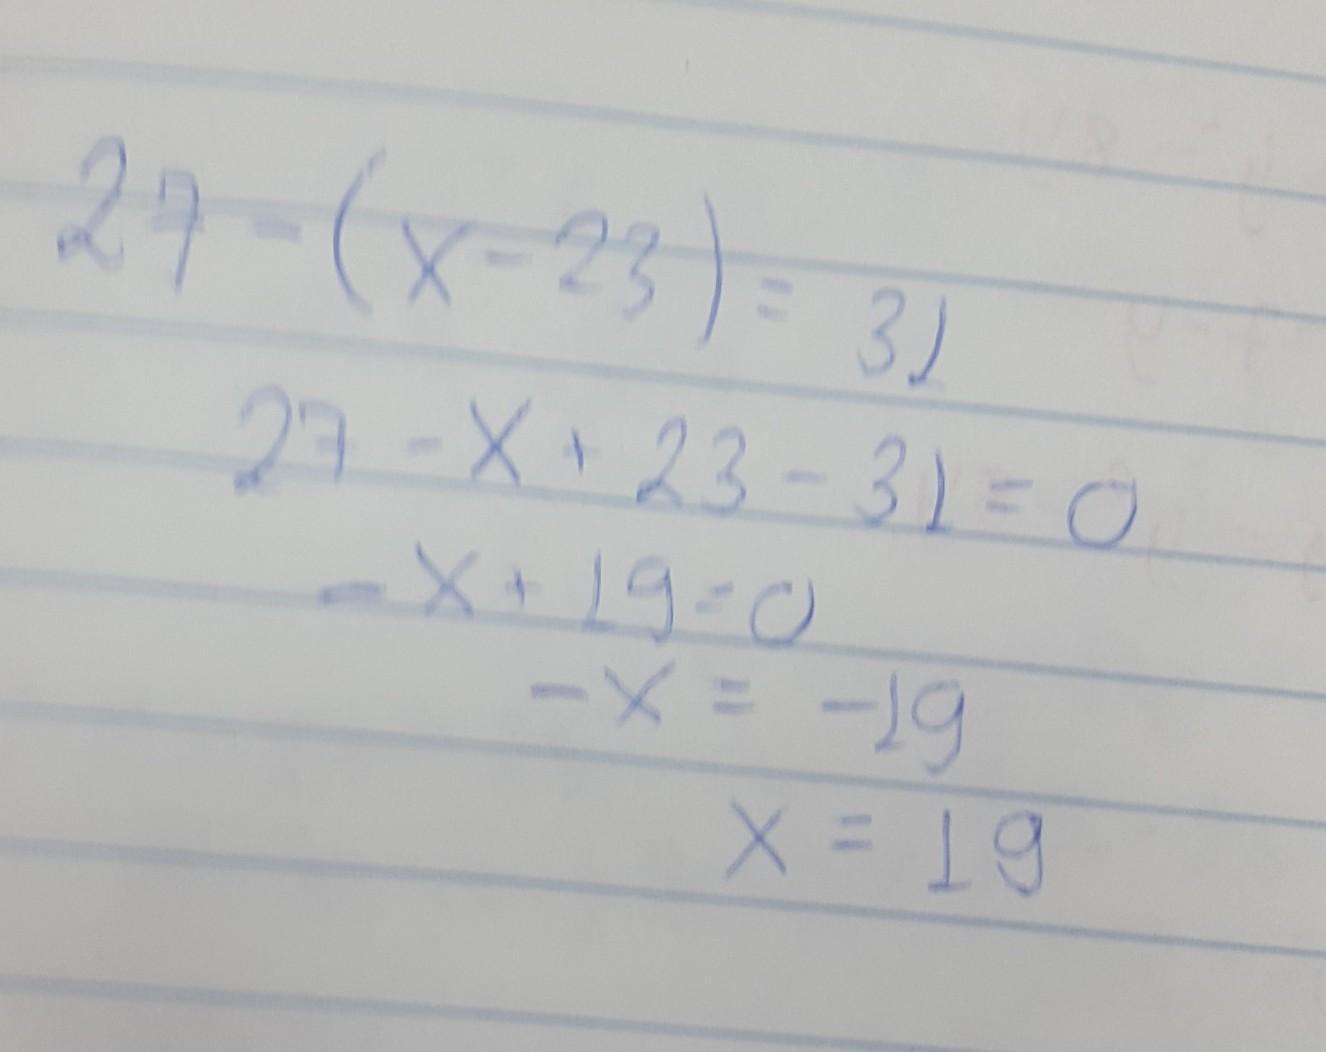 27 - (x - 23) = 31
27 - x + 23 - 31 = 0
- x + 19 = 0
- x = -19
x = 19